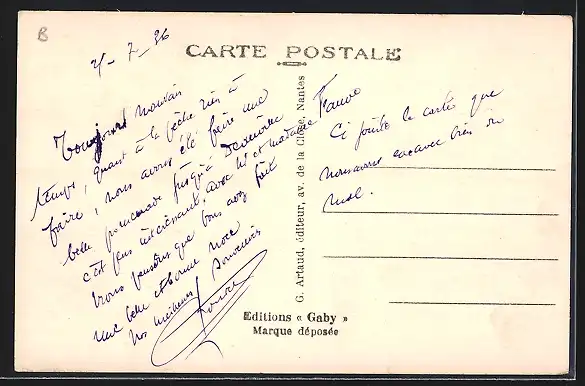 B
4-7-36
CARTE POSTALE
Toujours mauvais
temps, quant à la pêche rien à
faire, nous avons été faire une
belle promenade jusqu'à
c'est plus intéressant, avec Mr et madame Fauve
Nous pensons que vous avez fait
une belle et bonne noce
Nos meilleurs souvenirs
Ci joint la carte que
nous avons
G. Artaud, éditeur, av. de la Close, Nantes
Editions « Gaby »
Marque déposée